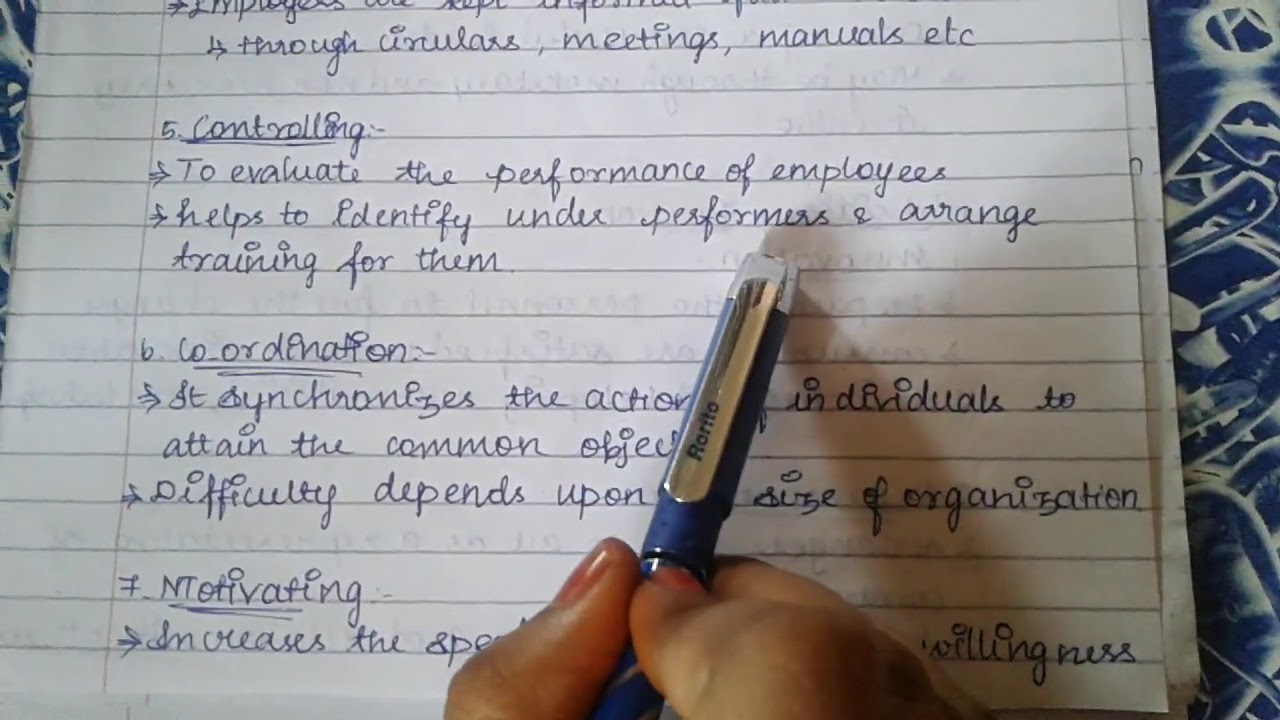 → Employees are kept informed
↳ through circulars, meetings, manuals etc
5. Controlling:-
→ To evaluate the performance of employees
→ helps to identify under performers & arrange
training for them.
6. Co-ordination:-
→ It synchronizes the action individuals to
attain the common objec
→ Difficulty depends upon size of organization
7. Motivating:-
→ Increases the spe willingness
Rorito